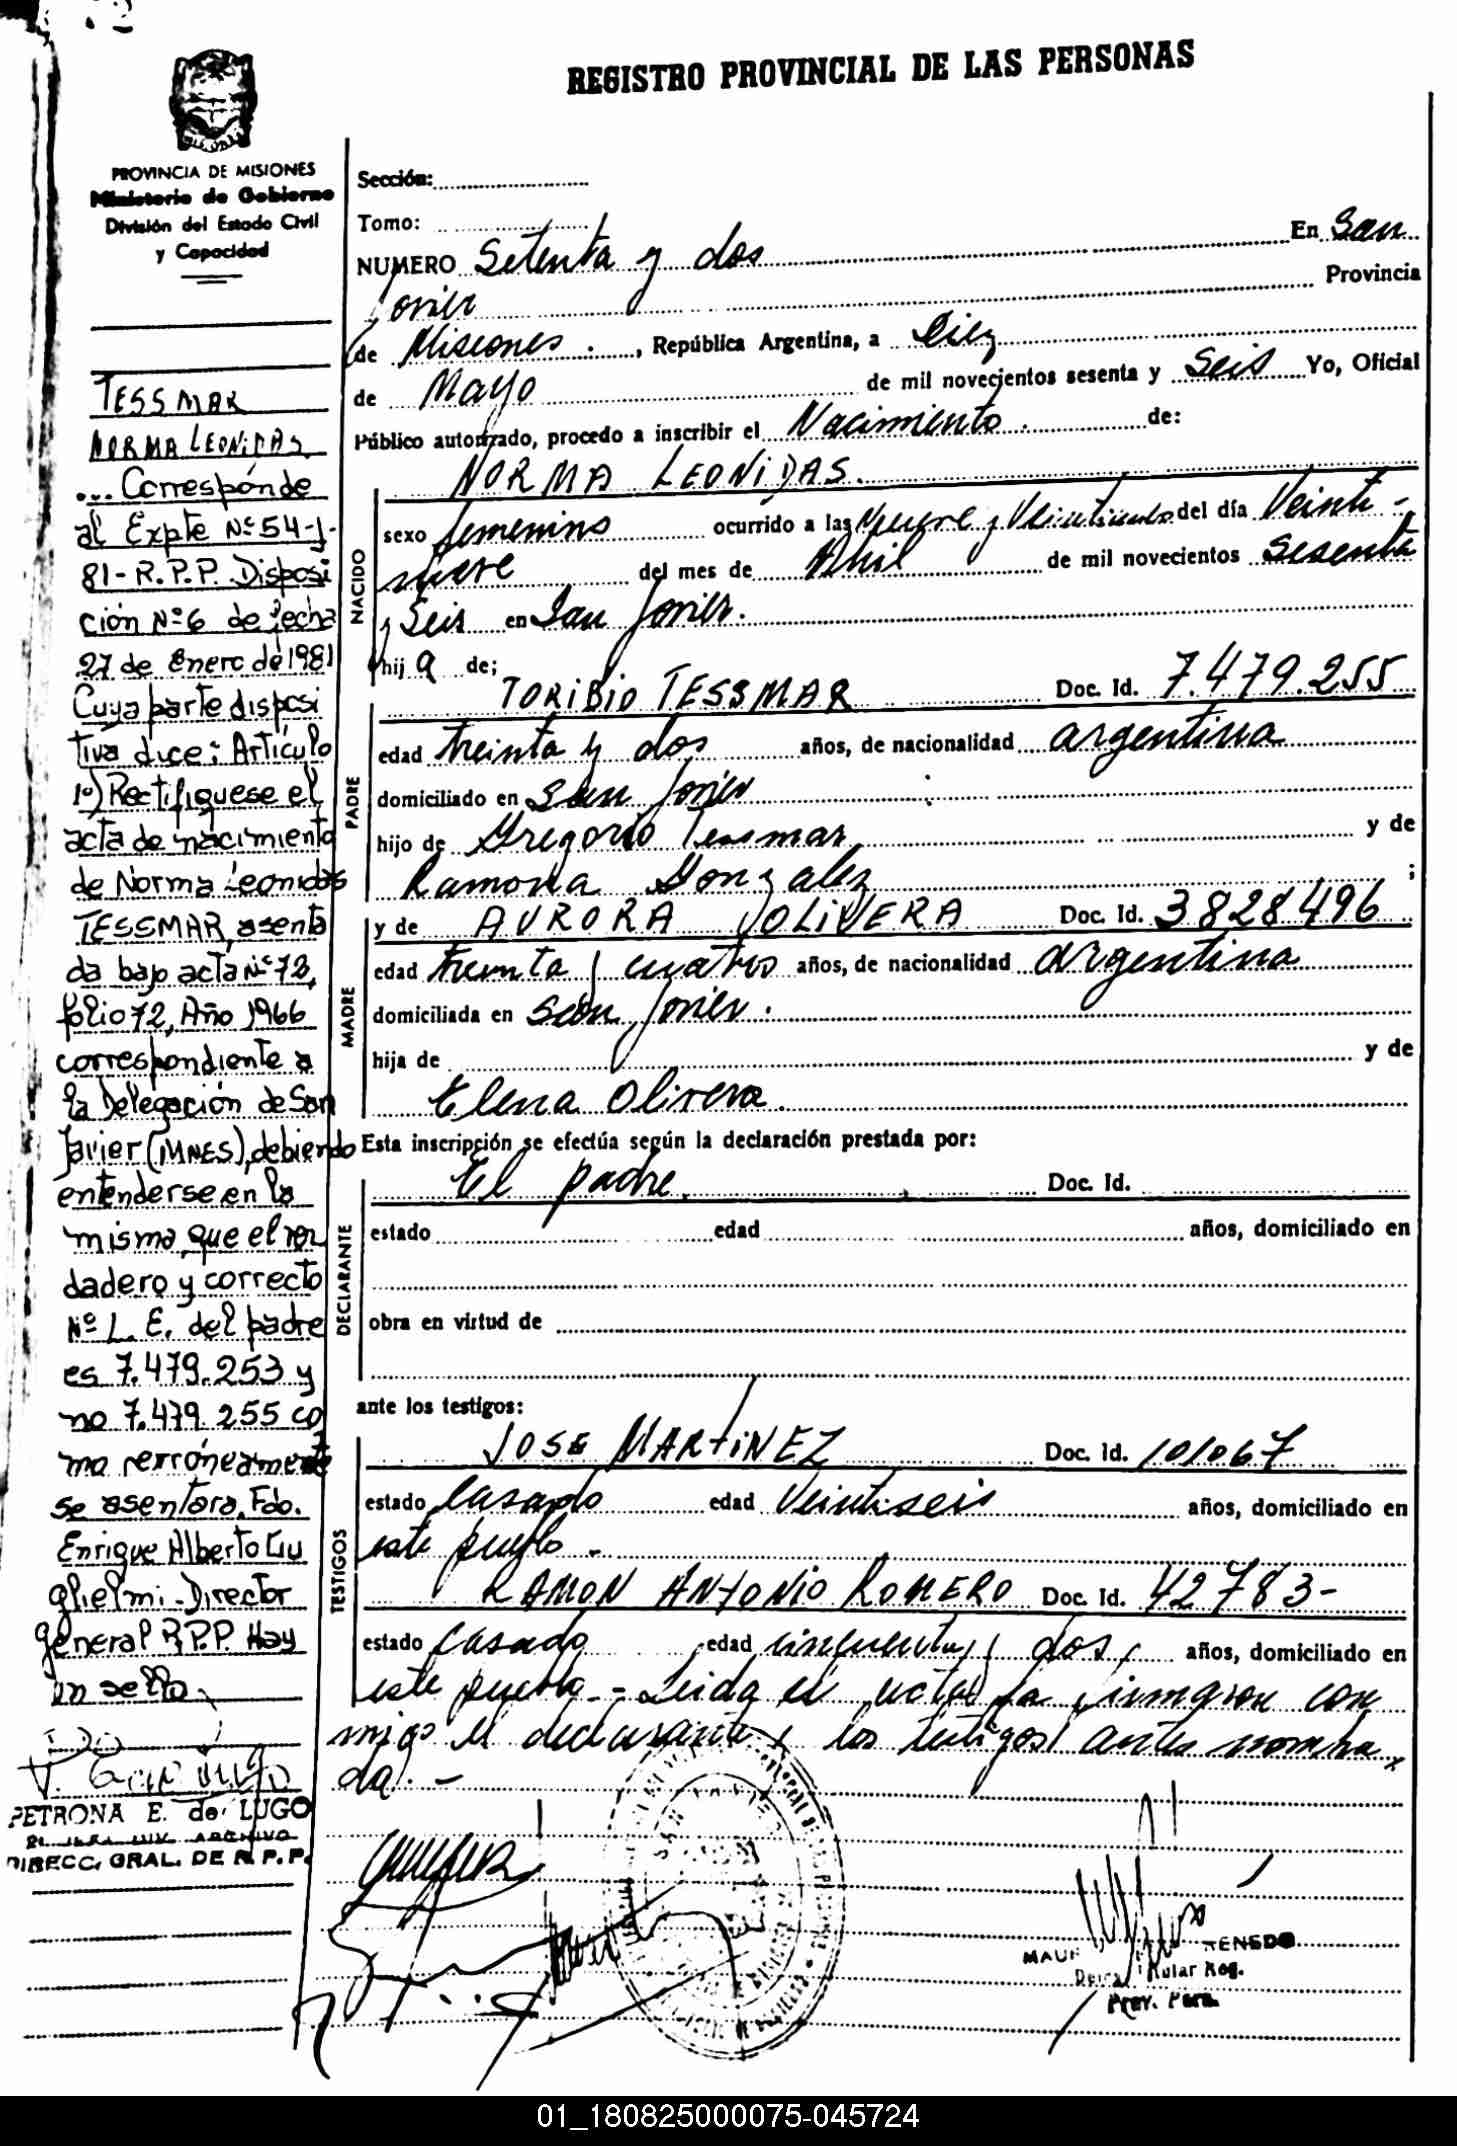 REGISTRO PROVINCIAL DE LAS PERSONAS
PROVINCIA DE MISIONES
Ministerio de Gobierno
División del Estado Civil
y Capacidad
TESSMAR
NORMA LEONIDAS
... Corresponde
al Expte Nº 54-J-
81-R.P.P. Disposi
ción Nº 6 de fecha
27 de Enero de 1981
Cuya parte disposi
tiva dice: Artículo
1º) Rectifíquese el
acta de nacimiento
de Norma Leonidas
TESSMAR, asenta
da bajo acta Nº 72,
folio 72, Año 1966
correspondiente a
la Delegación de San
Javier (MNES), debiendo
entenderse en la
misma, que el ver
dadero y correcto
Nº L. E. del padre
es 7.479.253 y
no 7.479.255 co
mo erróneamente
se asentara. Fdo.
Enrique Alberto Gu
glielmi - Director
general R.P.P. Hay
un sello.
PETRONA E. de LUGO
ARCHIVO
DIRECC. GRAL. DE R. P. P.
Sección:
Tomo:
NUMERO Setenta y dos En San
Javier Provincia
de Misiones . , República Argentina, a Diez
de Mayo de mil novecientos sesenta y Seis Yo, Oficial
Público autorizado, procedo a inscribir el Nacimiento. de:
NACIDO
NORMA LEONIDAS.
sexo femenino ocurrido a las Nueve y Veinticinco del día Veinti-
nueve del mes de Abril de mil novecientos Sesenta
y Seis en San Javier.
hij a de;
PADRE
TORIBIO TESSMAR Doc. Id. 7.479.255
edad treinta y dos años, de nacionalidad argentina
domiciliado en San Javier
hijo de Gregorio Tessmar y de
Ramona Gonzalez ;
MADRE
y de AURORA OLIVERA Doc. Id. 3828496
edad treinta y cuatro años, de nacionalidad argentina
domiciliada en San Javier.
hija de y de
Elena Olivera.
Esta inscripción se efectúa según la declaración prestada por:
DECLARANTE
El padre. Doc. Id.
estado edad años, domiciliado en
obra en virtud de
ante los testigos:
TESTIGOS
JOSE MARTINEZ Doc. Id. 101067
estado Casado edad Veintiseis años, domiciliado en
este pueblo -
RAMON ANTONIO ROMERO Doc. Id. 42783-
estado casado edad cincuenta y dos, años, domiciliado en
este pueblo. - Leida el acta la firmaron con
migo el declarante y los testigos antes nombra
do. -
Prov. Pers.
01_180825000075-045724